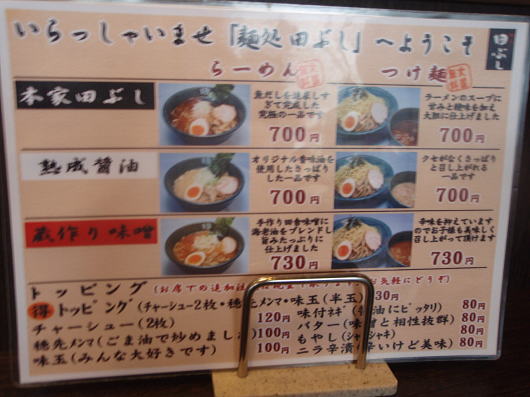 いらっしゃいませ「麺処 田ぶし」へようこそ
田ぶし
らーめん
つけ麺
本家田ぶし
魚だしを追求しす
ぎて完成した
究極の一品です
700円
ラーメンのスープに
甘みと酸味を加え
大胆に仕上げました
700円
熟成醤油
オリジナル香味油を
使用したさっぱり
した一品です
700円
クセがなくさっぱり
と召し上がれる
一品です
700円
蔵作り味噌
手作り田舎味噌に
海老油をブレンドし
旨みたっぷりに
仕上げました
730円
辛味を抑えています
のでお子様も美味しく
召し上がって頂けます
730円
トッピング(お席での追加は お気軽にどうぞ)
得トッピング(チャーシュー2枚・穂先メンマ・味玉(半玉) 30円
チャーシュー(2枚) 120円
穂先メンマ(ごま油で炒めました 100円
味玉(みんな大好きです) 100円
味付ネギ(油にピッタリ) 80円
バター(味噌と相性抜群) 80円
もやし(シャキシャキ) 80円
ニラ辛漬(辛いけど美味) 80円